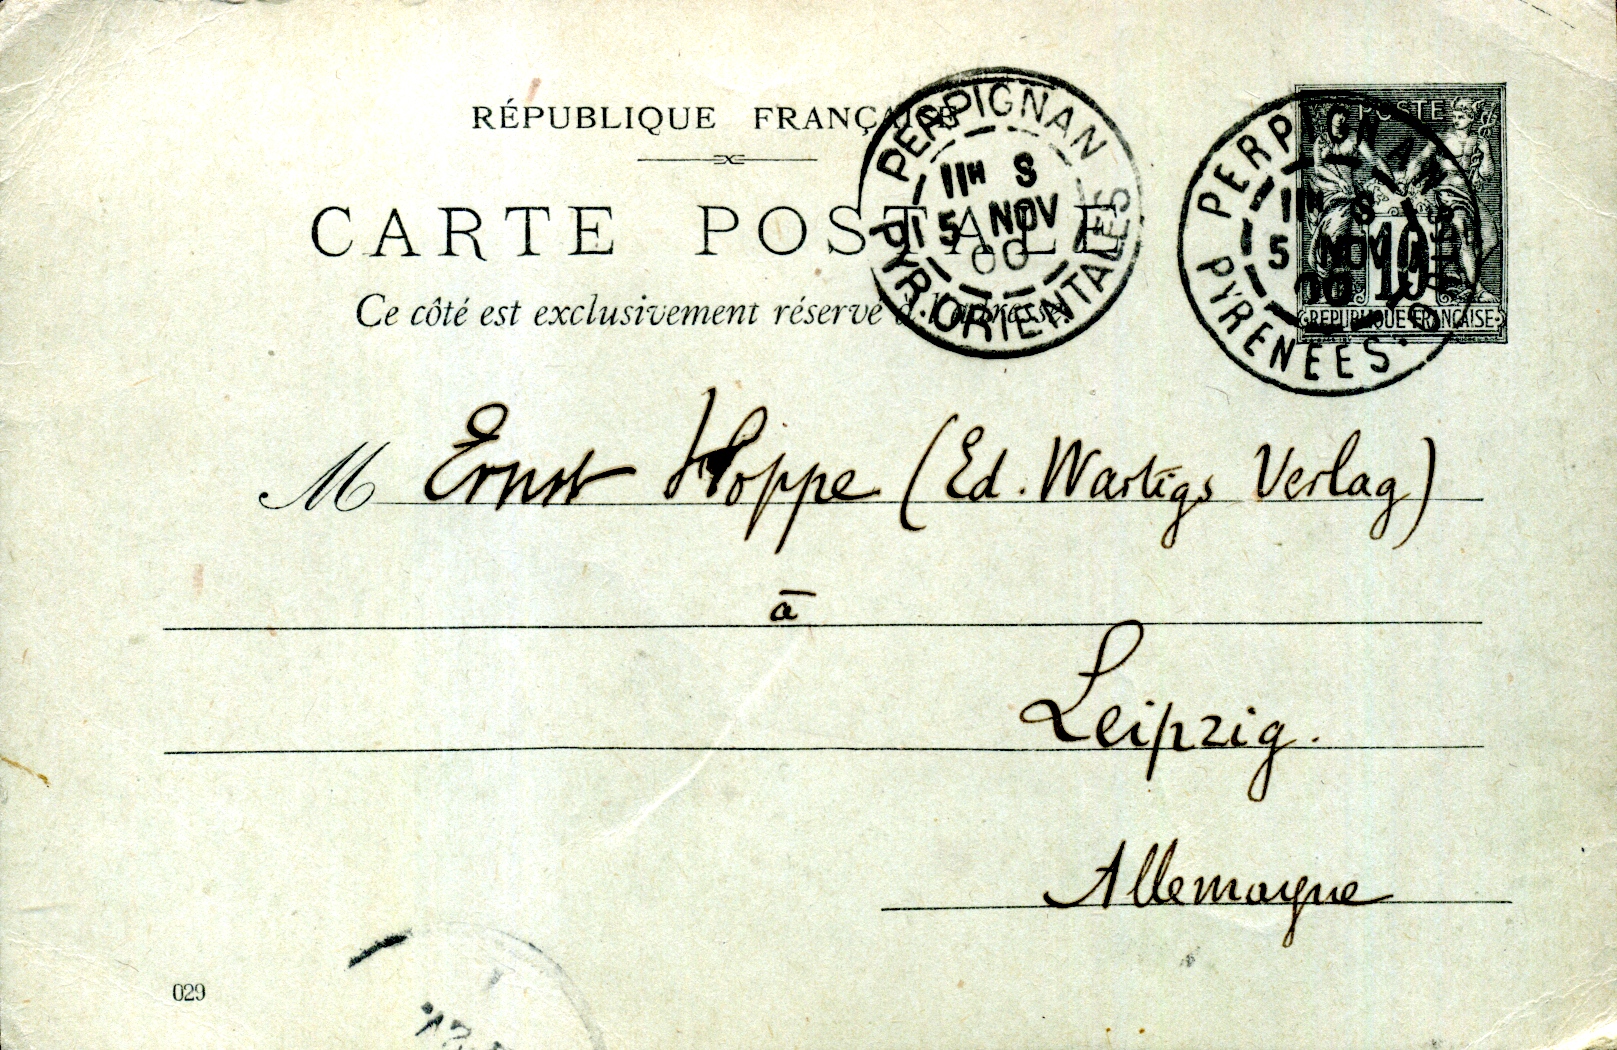 RÉPUBLIQUE FRANÇAISE
CARTE POSTALE
Ce côté est exclusivement réservé à l'adresse
PERPIGNAN
11H S
5 NOV
00
PYR. ORIENTALES
POSTE
15
RÉPUBLIQUE FRANÇAISE
PERPIGNAN
11H S
5 NOV
00
PYRENEES
M Ernst Hoppe (Ed. Wartigs Verlag)
à
Leipzig.
Allemagne
029